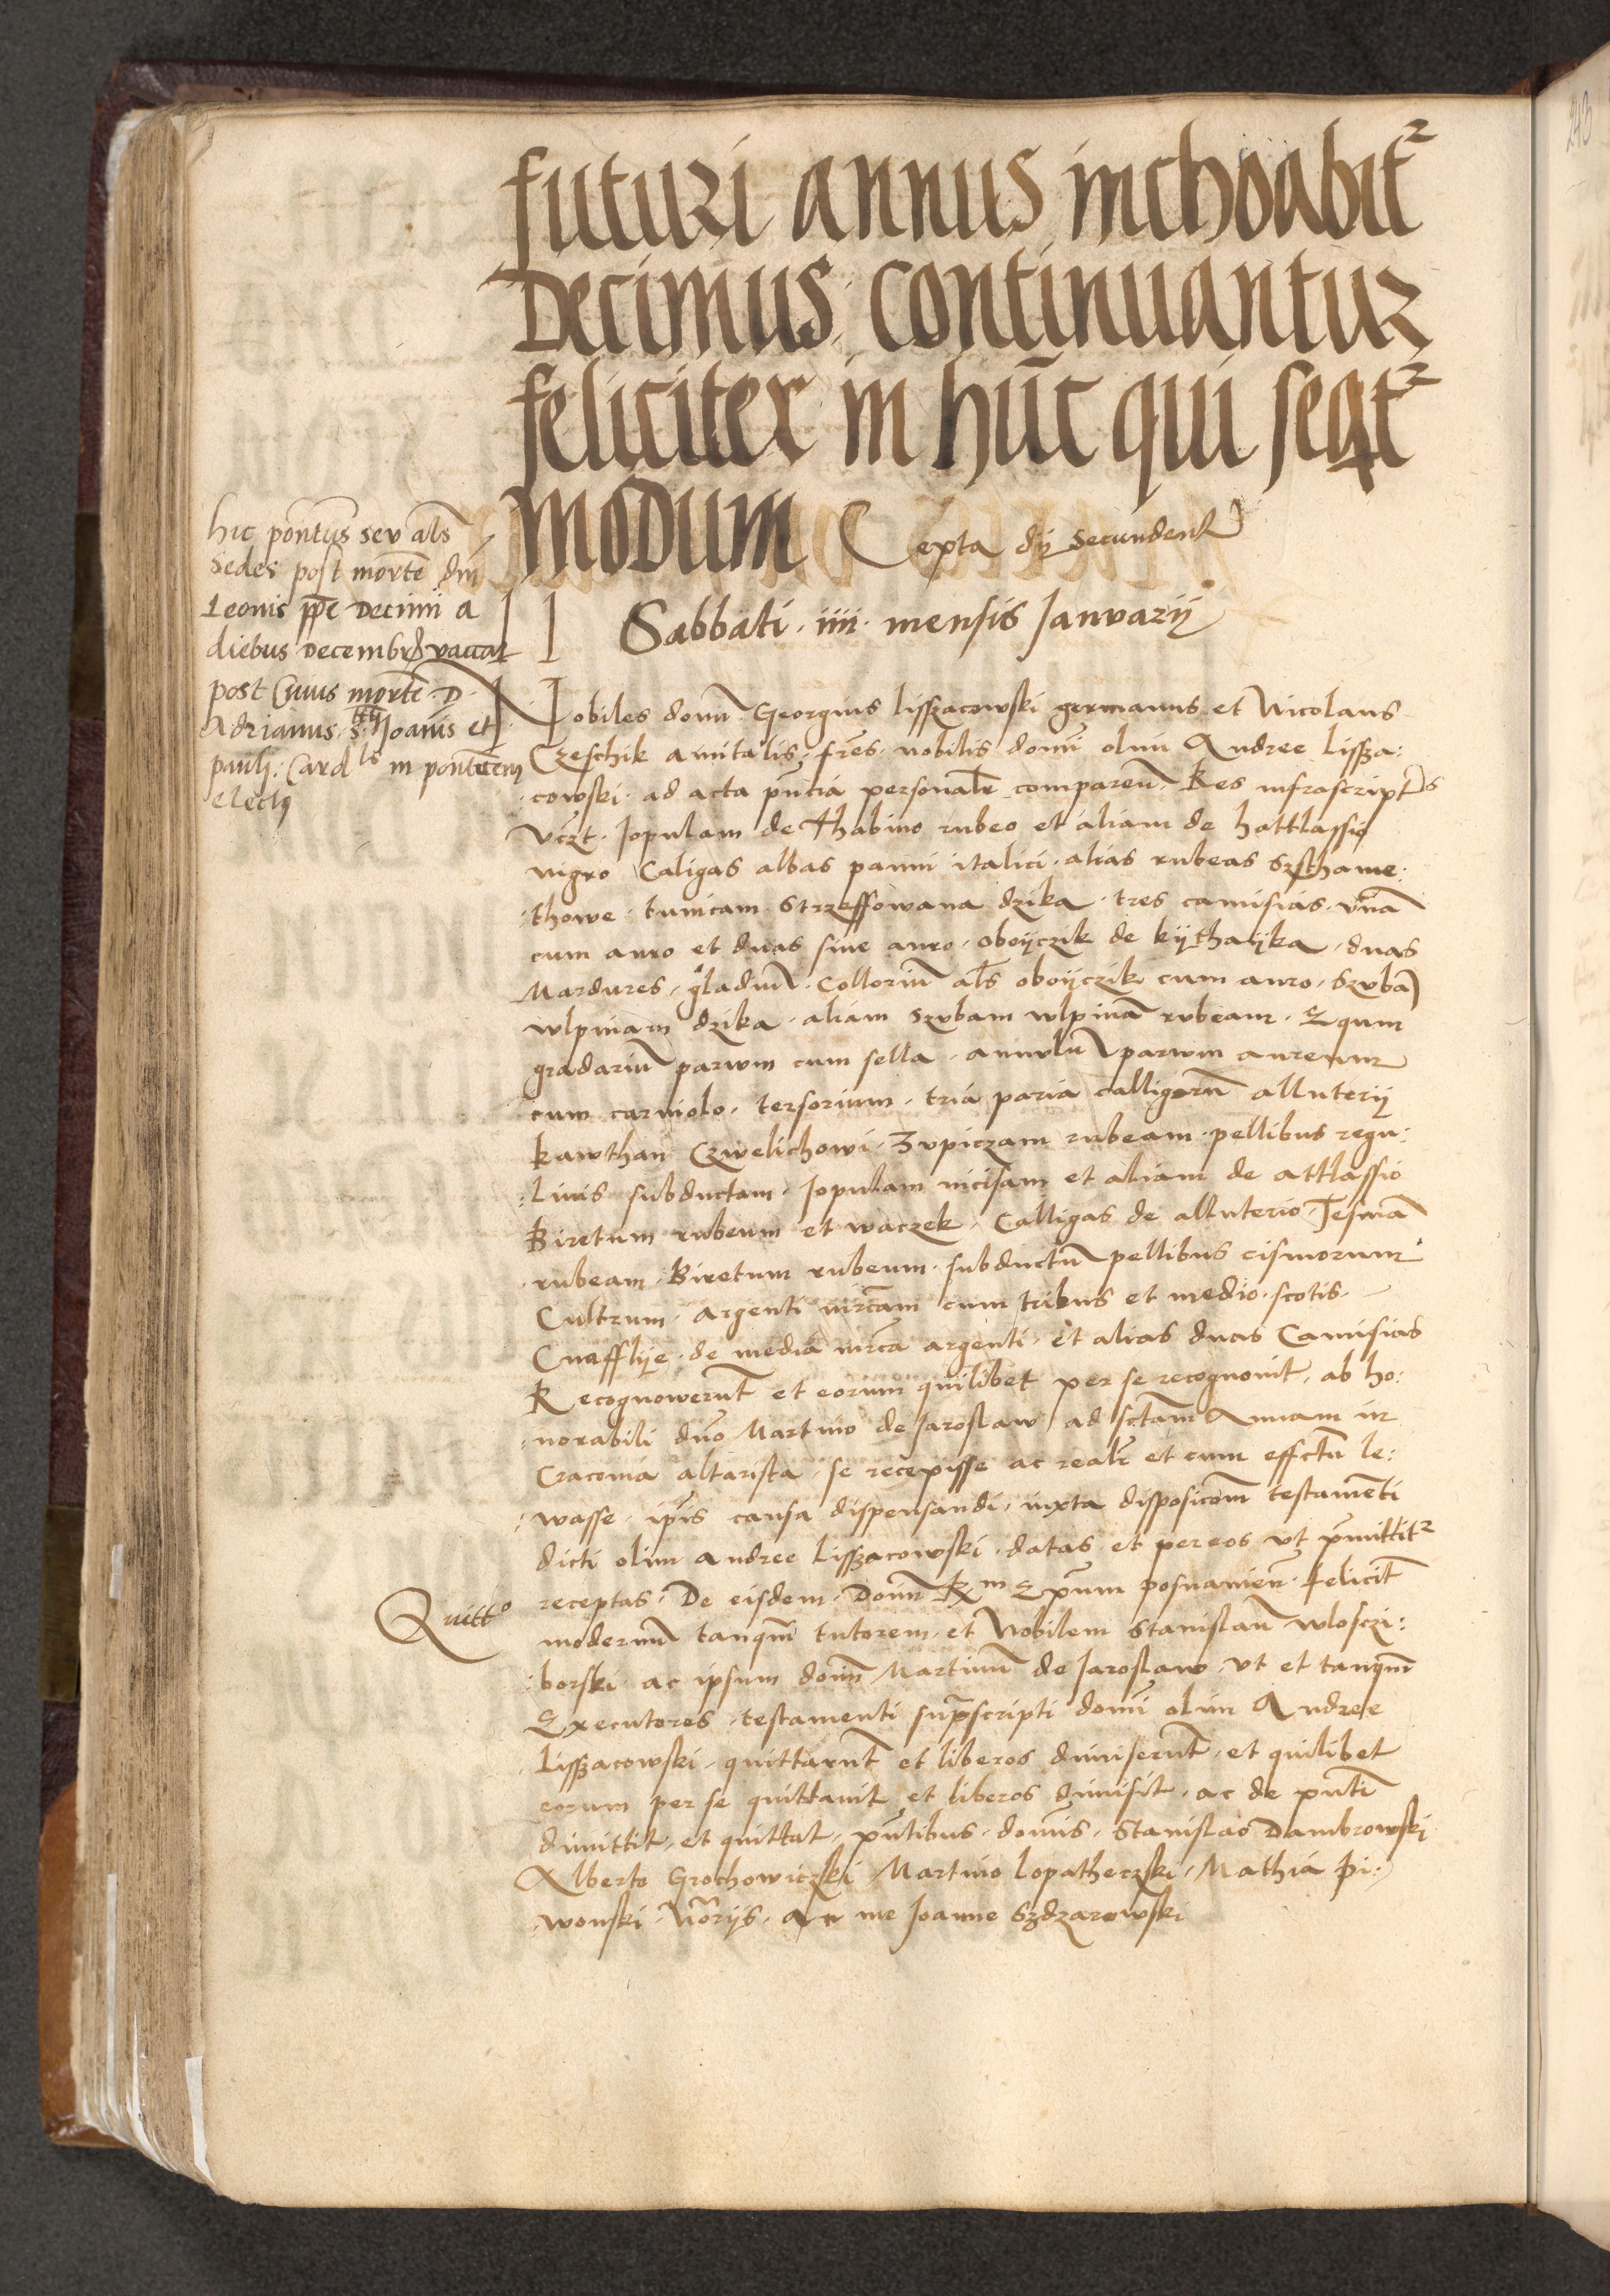 futuri annus inchoabit²
Decimus continuantur
feliciter in hūc qui seqt²
modum
Cepta dij Secundent
hic pontūs seu als̄
Sedes post mortē dni
Leonis ppe Decimi a
diebus Decembr vaccat
post Cuius mortē D.
Adrianus S. Ioanis et
pauli Card lis in pontcem
electus
Sabbati iiii mensis Ianuarij
Nobiles domi Georgius lisszacowski germanus et Nicolaus
Czeschik amitalis frēs nobilis domi olim Andree Lissza:
:cowski ad acta pntia personalr comparen Res infrascriptas
Vczt Iopulam de Thabino rubeo et aliam de hattlassio
nigro Caligas albas panni italici alias rubeas Szthame:
:thowe tunicam Strzeffowana dzika tres camisias vnā
cum auro et duas sine auro oboijczik de kijthaijka duas
Mardures gladiū Colloriū als̄ oboijczik cum auro Szubā
wlpinam dzika aliam Szubam wlpinā rubeam Equm
gradariū parwm cum sella annulū parwm aureum
cum carniolo tersorium tria paria calligarū alluterij
kawthan Czwelichowi Zupiczam rubeam pellibus regu:
:linis subductam Iopulam incisam et aliam de attlassio
Biretum rubeum et waczek Calligas de alluterio Tesmā
rubeam Biretum rubeum subductū pellibus cismorum
Cultrum argenti mrcam cum tribus et medio scotis
Cnafflije de media mrca argenti et alias duas Camisias
Recognowerūt et eorum quilibet per se recognouit ab ho:
:norabili dno Martino de Iaroslaw ad sctam Annam in
Cracouia altarista se recepisse ac realr et cum effctu le:
:wasse ipis causa dispensandi iuxta disposicom testamenti
dicti olim Andree Lisszacowski datas et per eos vt pmittit²
Quitto
receptas De eisdem Domī Rm Epum posnanien felicit
modernū tanqm tutorem et Nobilem Stanislaū wlosczi:
:borski ac ipsum domī Martinū de Iaroslaw vt et tanqm
Executores testamenti suprascripti domi olim Andree
Lisszacowski quittarūt et liberos dimiserūt et quilibet
eorum per se quittauit et liberos dimisit ac de pnti
dimittit et quittat pntibus domis Stanislao Dambrowski
Alberto Grochowiczski Martino lopatheczski Mathia Pi:
:wonski Norijs ac me Joanne Szdzarowski